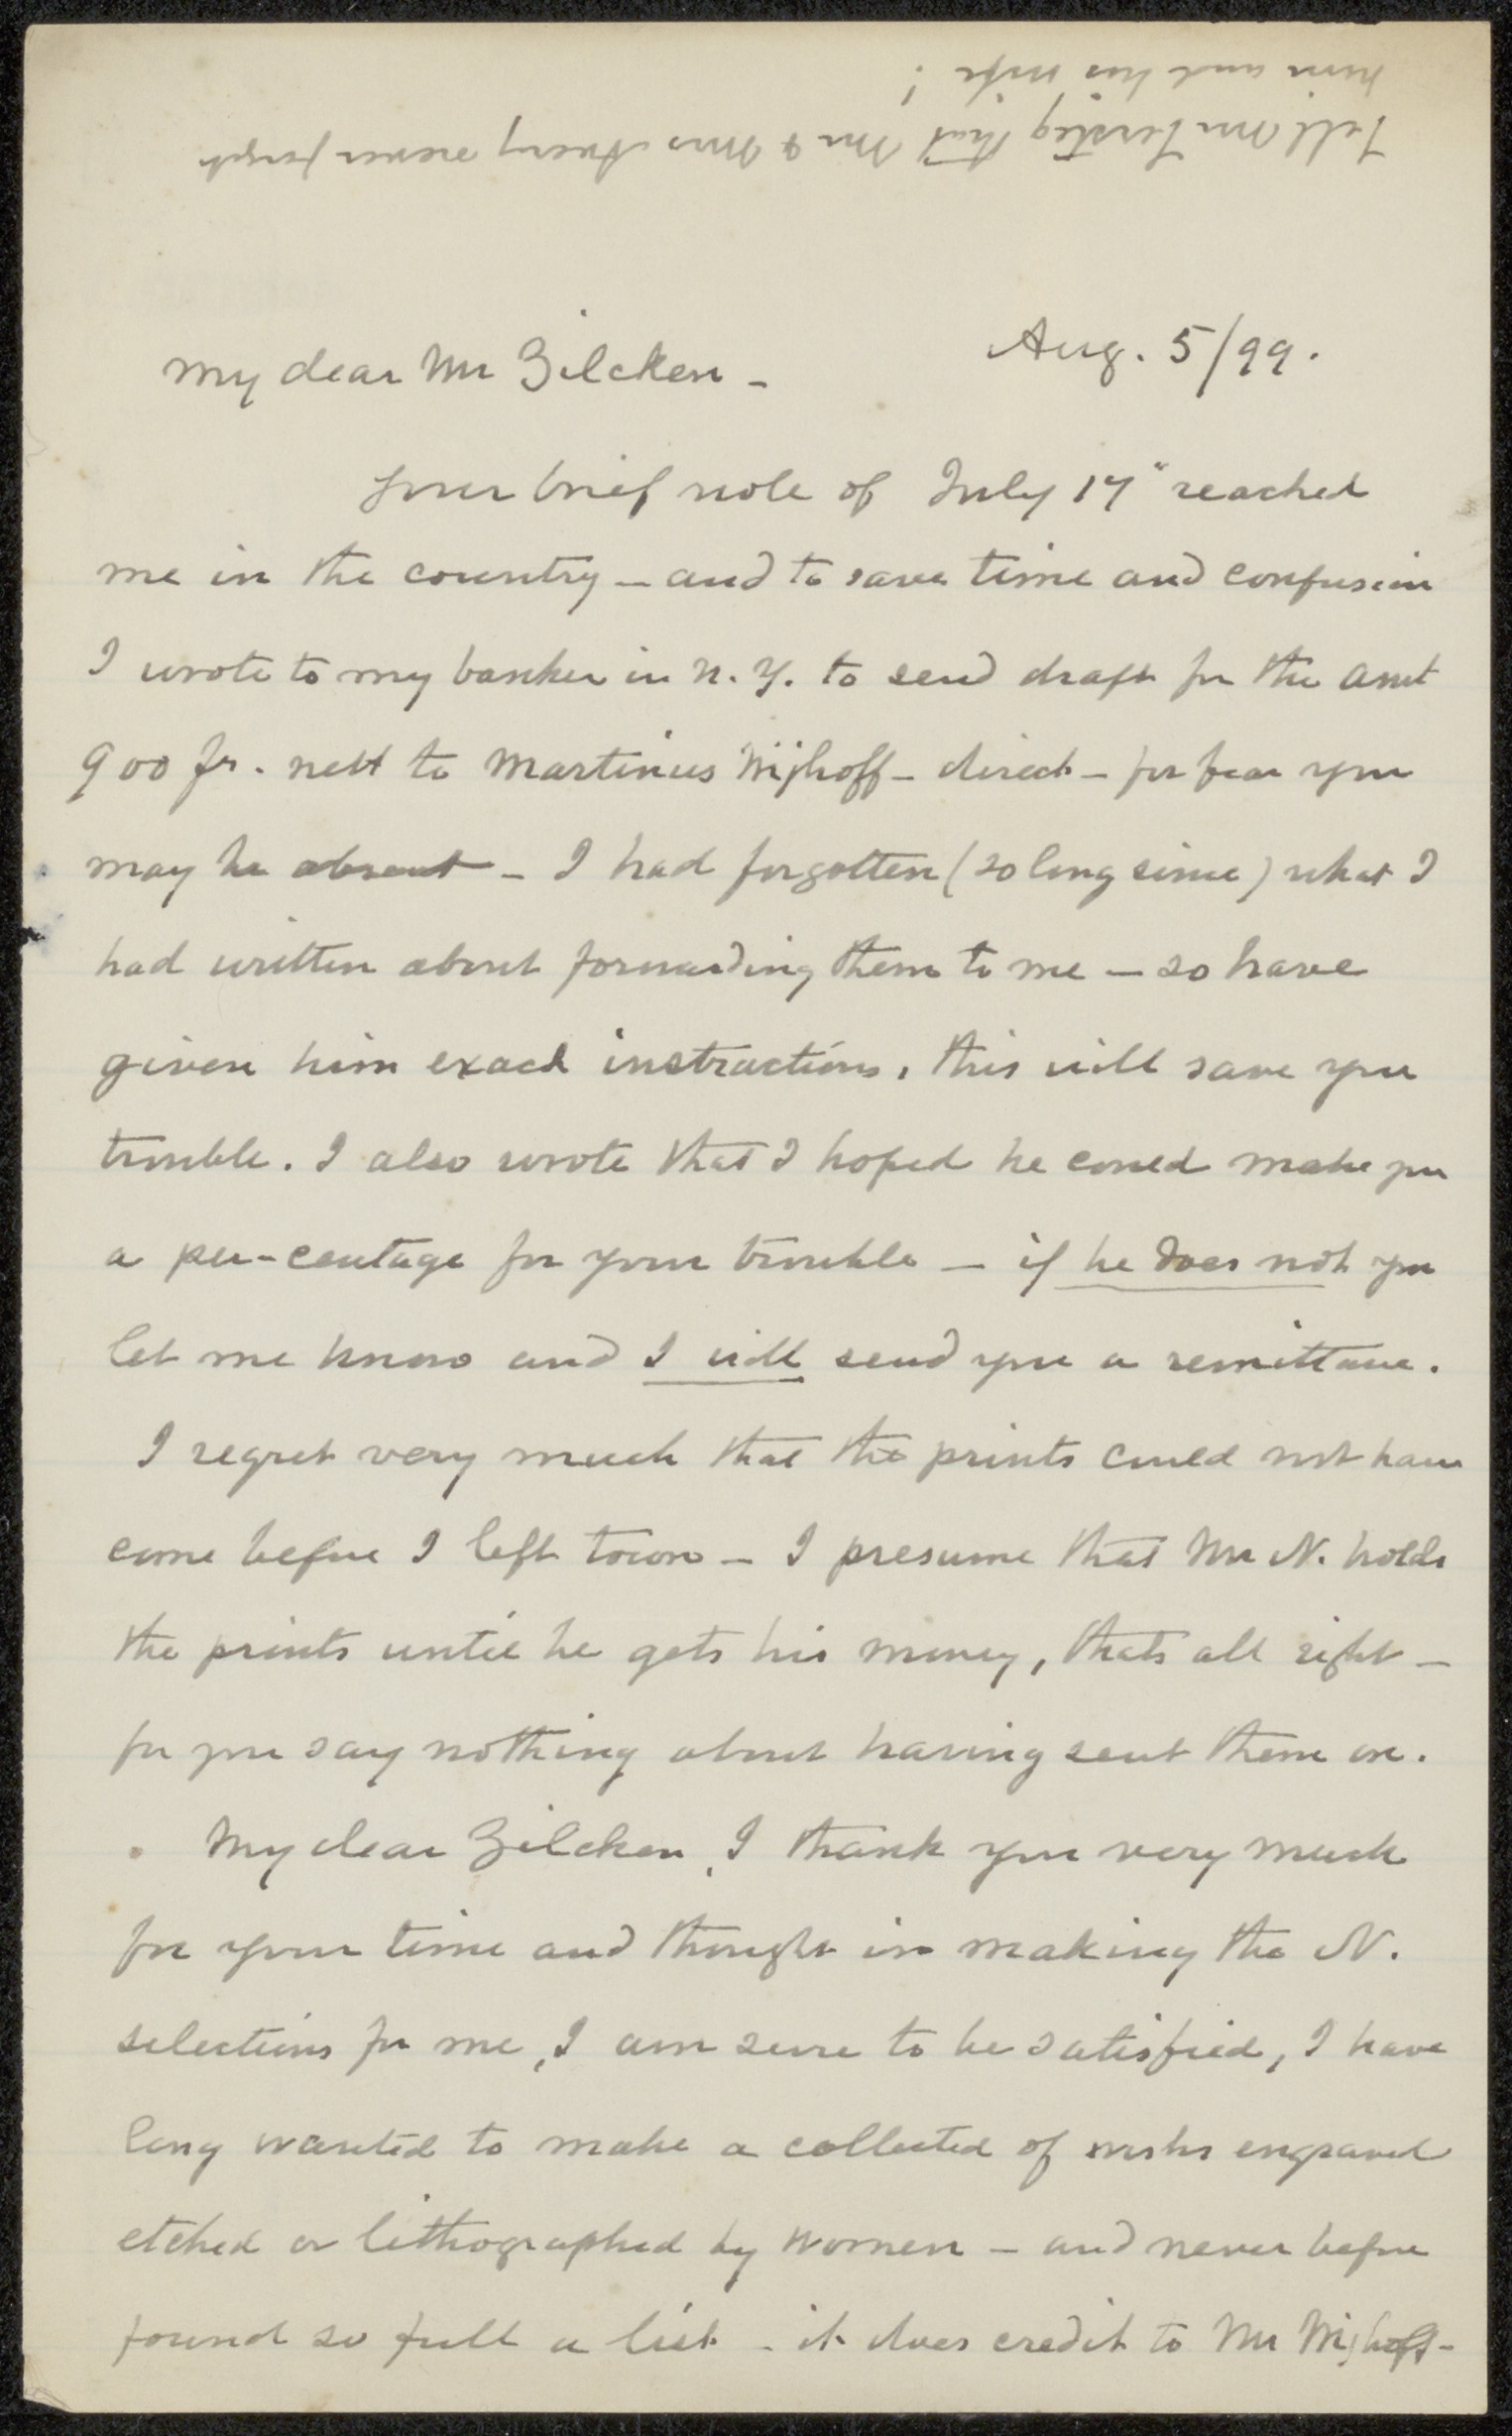 Tell Mr Tersteeg that Mr & Mrs Avery never forget
him and his wife!
Aug. 5/99.
My dear Mr Zilcken -
Your brief note of July 17" reached
me in the country - and to save time and confusion
I wrote to my banker in N. Y. to send draft for the amt
900 fr. nett to Martinus Nijhoff - direct - for fear you
may be absent - I had forgotten (so long since) what I
had written about forwarding them to me - so have
given him exact instructions, this will save you
trouble. I also wrote that I hoped he could make you
a per-centage for your trouble - if he does not you
let me know and I will send you a remittance.
I regret very much that the prints could not have
come before I left town - I presume that Mr N. holds
the prints until he gets his money, thats all right -
for you say nothing about having sent them on.
My dear Zilcken, I thank you very much
for your time and thought in making the N.
selections for me, I am sure to be satisfied, I have
long wanted to make a collected of works engraved
etched or lithographed by women - and never before
found so full a list - it does credit to Mr Nijhoff -